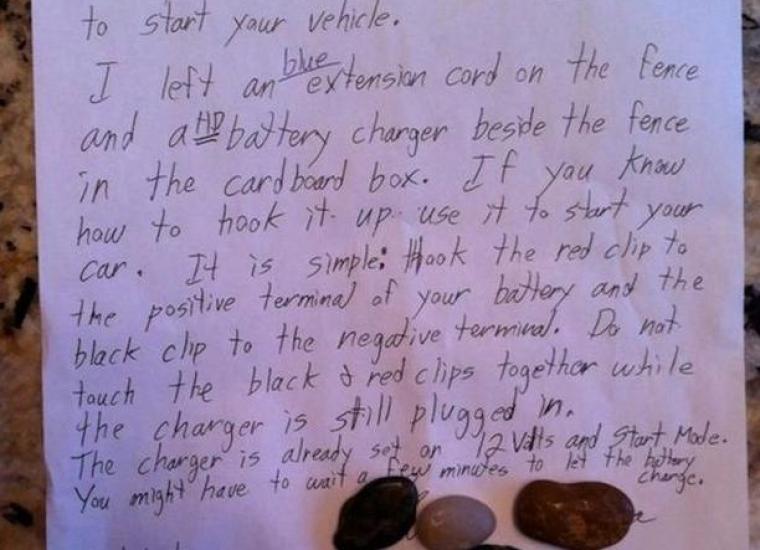 to start your vehicle.
I left an blue extension cord on the fence
and a HD battery charger beside the fence
in the cardboard box. If you know
how to hook it up use it to start your
car. It is simple: Hook the red clip to
the positive terminal of your battery and the
black clip to the negative terminal. Do not
touch the black & red clips together while
the charger is still plugged in.
The charger is already set on 12 Volts and Start Mode.
You might have to wait a few minutes to let the battery
charge.